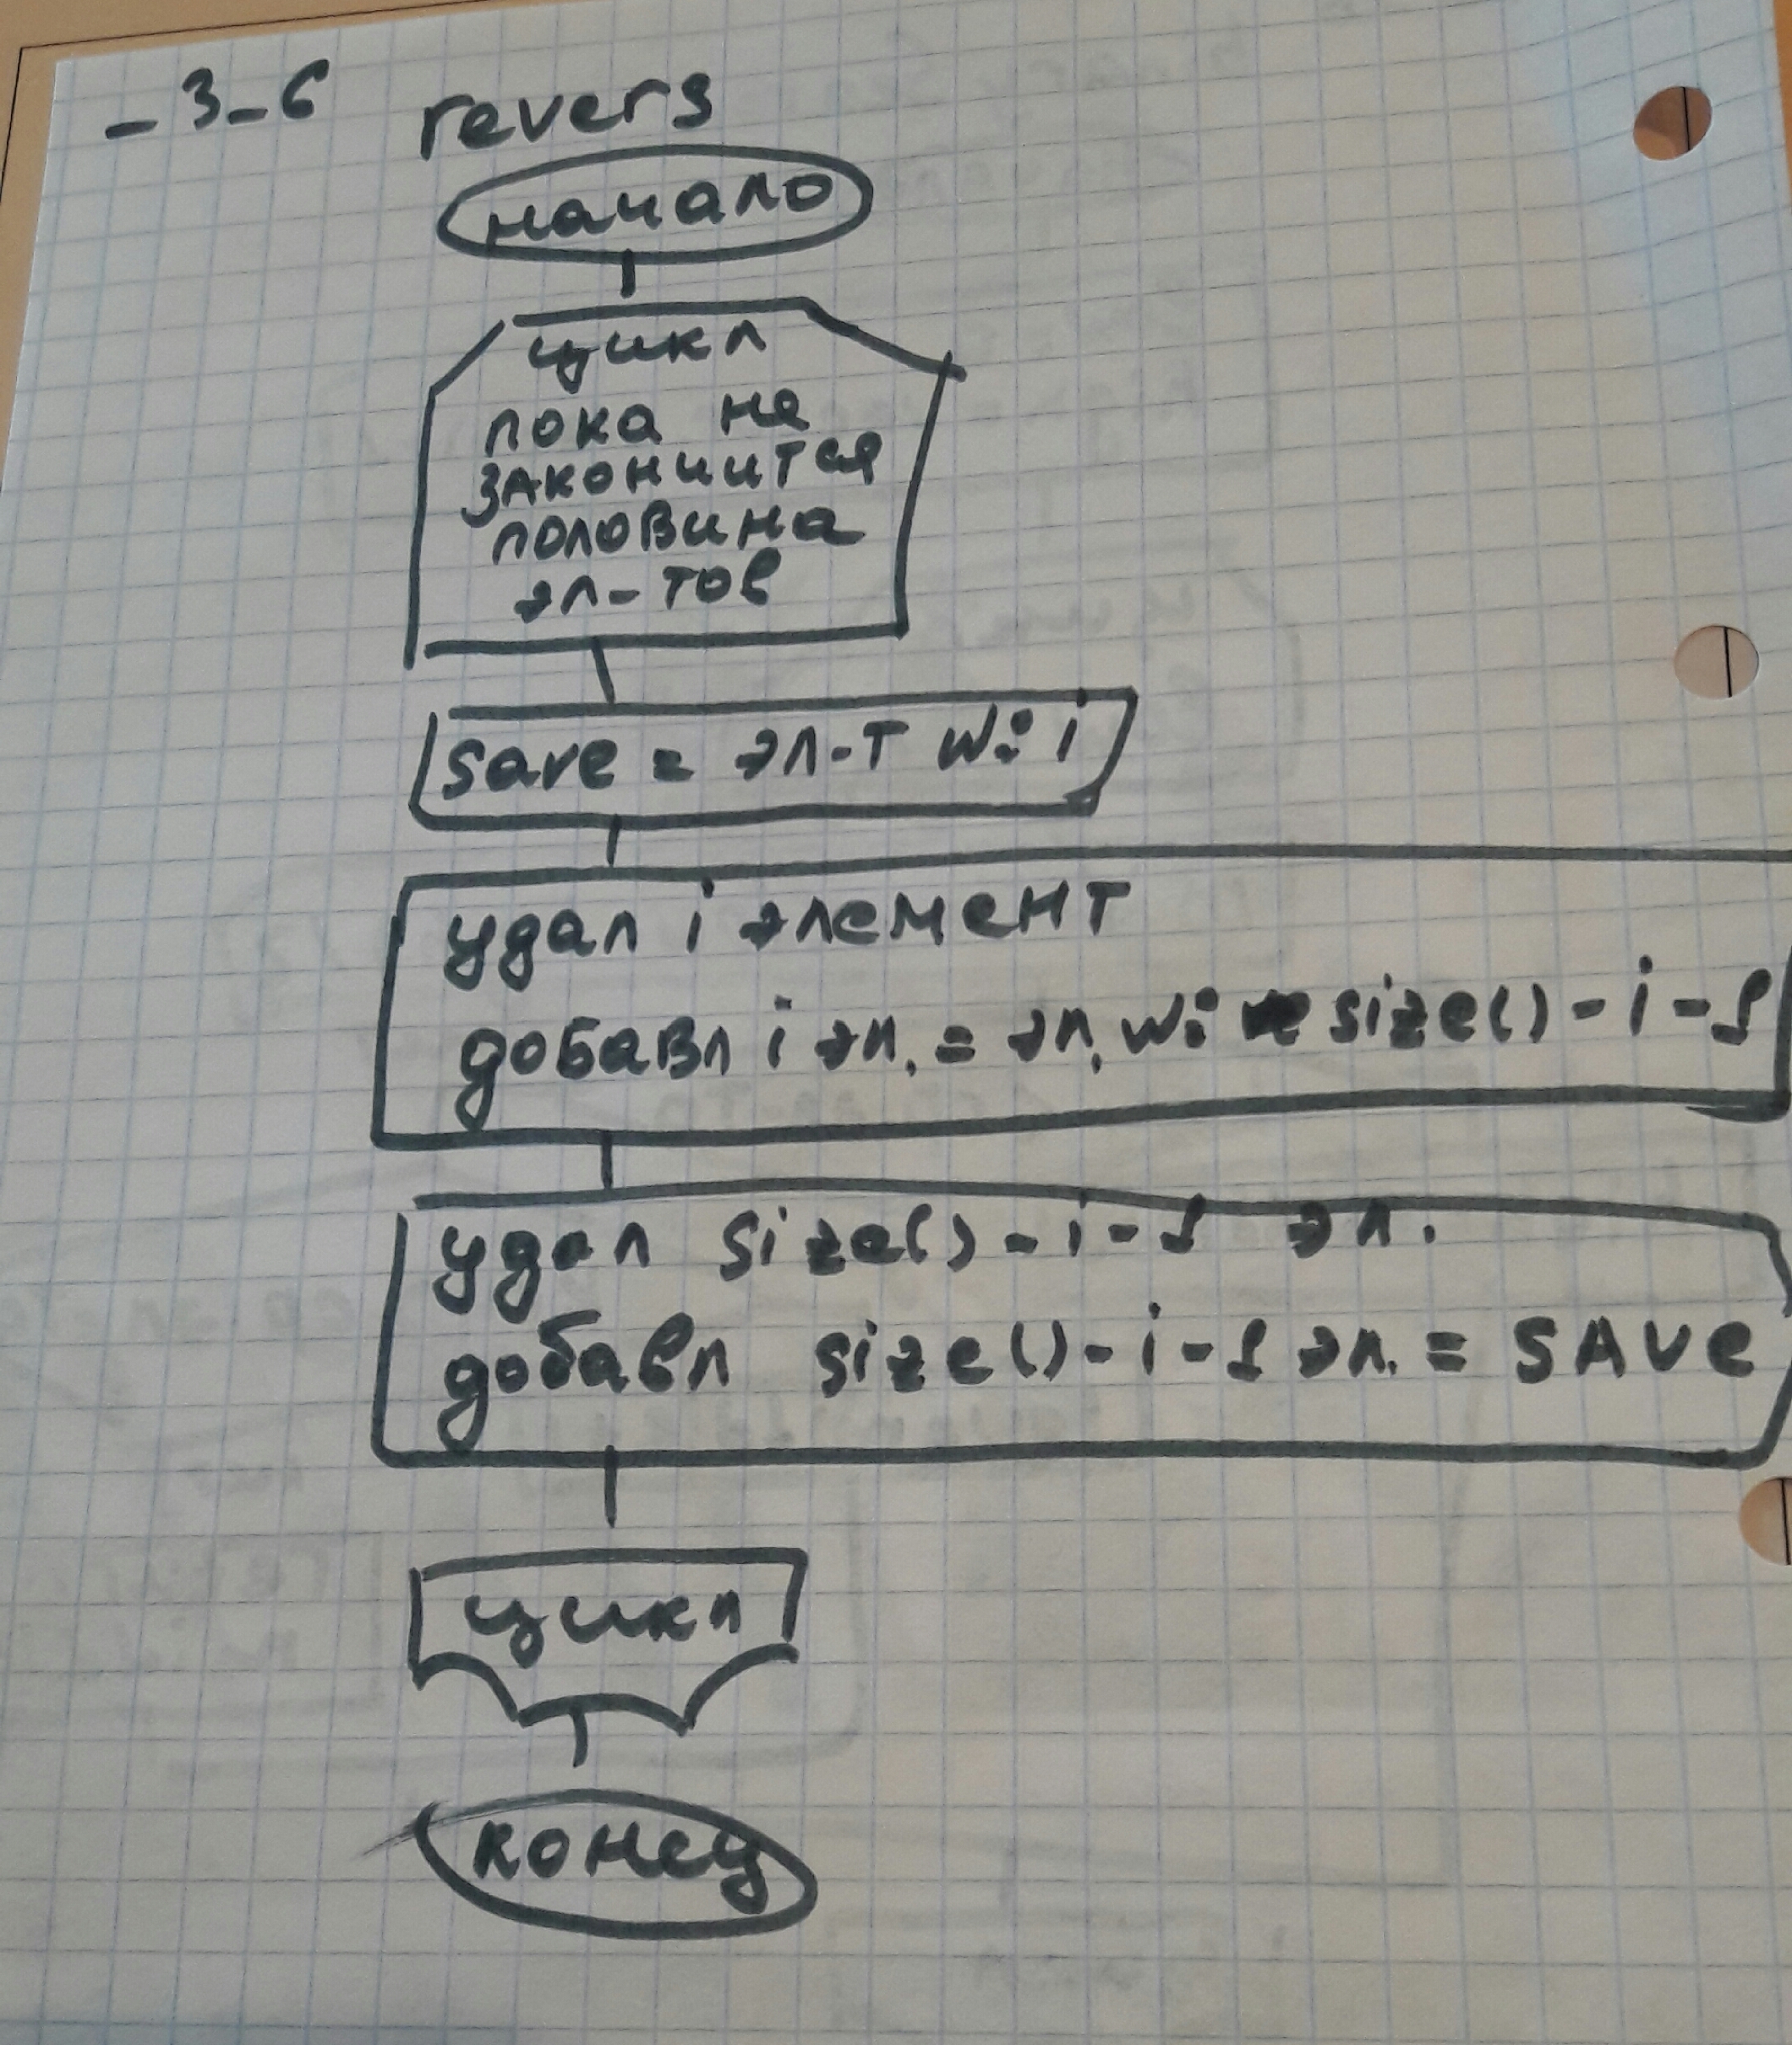 _ 3_6 revers
начало
цикл
пока не
закончится
половина
эл-тов
save = эл-т w: i
удал i элемент
добавл i эл. = эл. w: size() - i - 1
удал size() - i - 1 эл.
добавл size() - i - 1 эл. = SAVe
цикл
конец